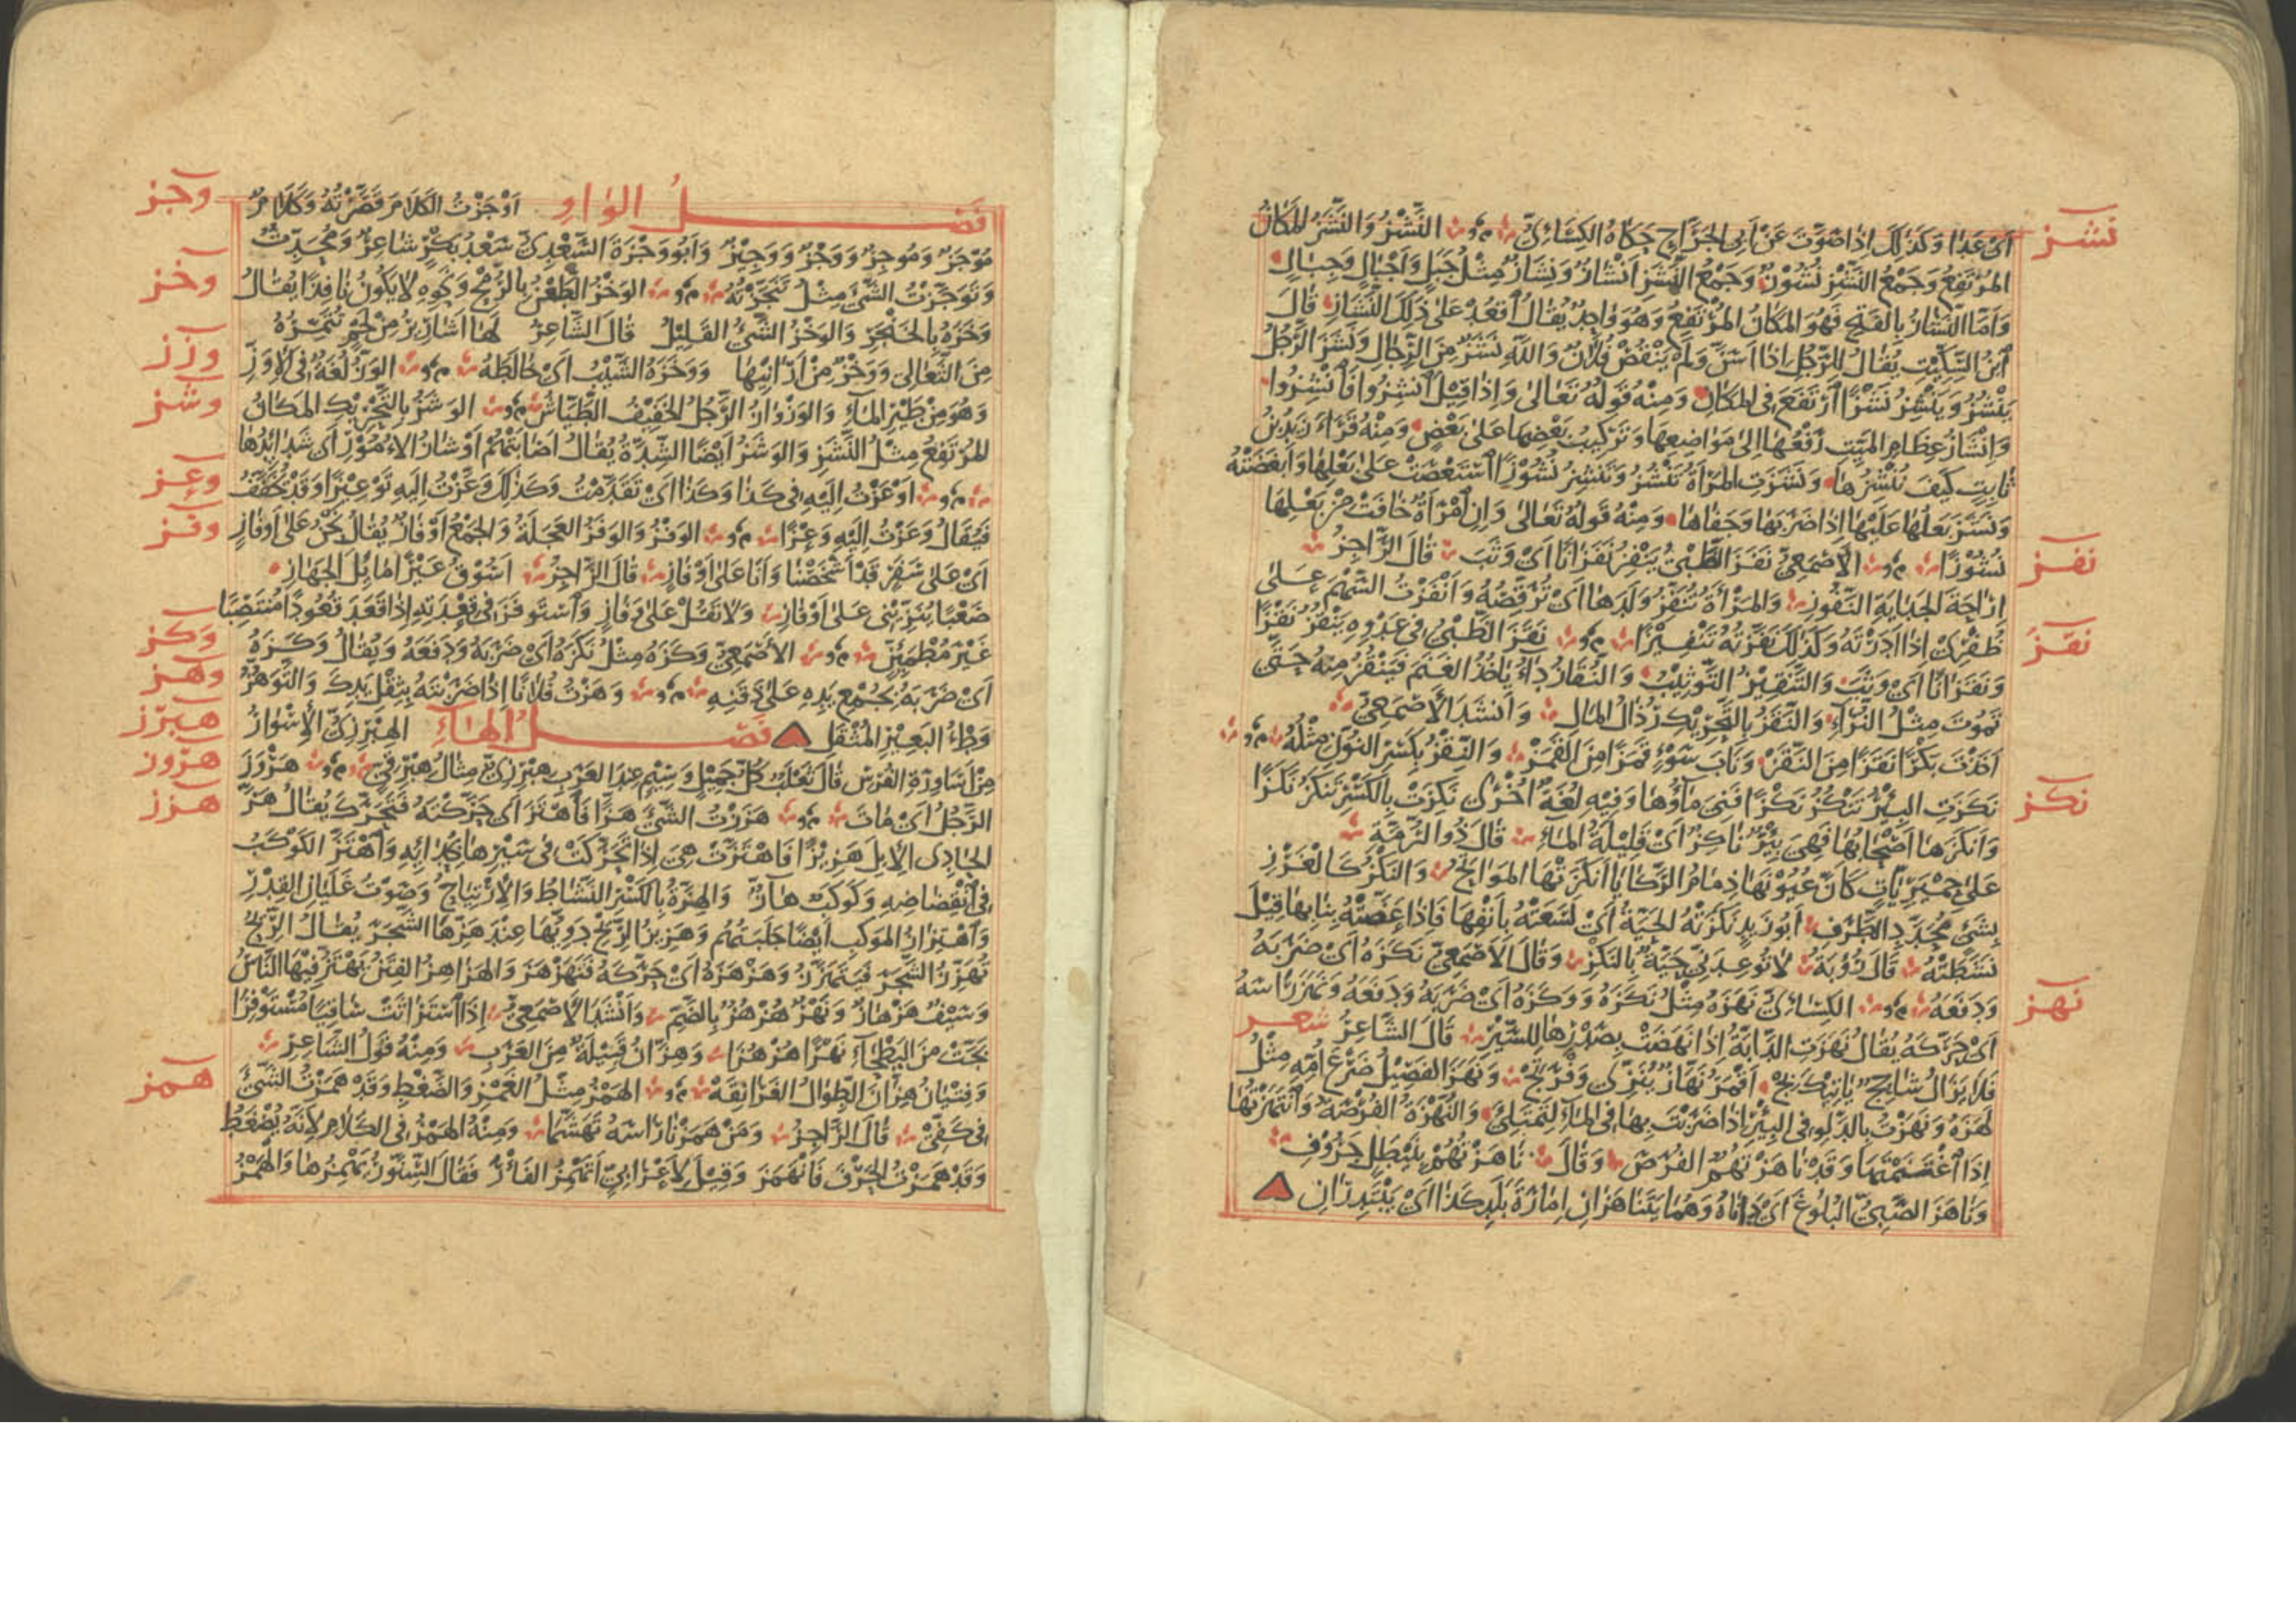 نشز
أى عَدَا وَكَذلِكَ إذا صَوَّتَ عَنْ أبى الجَرَّاحِ حَكاهُ الكِسَائىّ النَّشْزُ وَالنَّشَزُ المَكَانُ
المُرْتَفِعُ وَجَمْعُ النَّشْزِ نُشُوزٌ وَجَمْعُ النَّشَزِ اَنْشَازٌ وَنِشَازٌ مِثْلُ جَبَلٍ وَاَجْبَالٍ وَجِبَالٍ
وَاَمَّا النَّشَازُ بِالفَتْحِ فَهُوَ المَكَانُ المُرْتَفِعُ وَهُوَ وَاحِدٌ يُقَالُ اُقْعُدْ عَلى ذلِكَ النَّشَازِ قَالَ
اِبْنُ السِّكِّيتِ يُقَالُ لِلرَّجُلِ اِذَا اَسَنَّ وَلَمْ يَنْقُصْ فُلَانٌ وَاللّهِ نَشَزٌ مِنَ الرِّجَالِ وَنَشَزَ الرَّجُلُ
يَنْشُزُ وَيَنْشِزُ نَشْزًا اِرْتَفَعَ فى المَكَانِ وَمِنْهُ قَوْلُهُ تَعَالى وَاِذَا قِيلَ اُنْشِزُوا فَانْشِزُوا
وَاِنْشَازُ عِظَامِ المَيِّتِ رَفْعُهَا اِلى مَوَاضِعِهَا وَتَرْكِيبُ بَعْضِهَا عَلى بَعْضٍ وَمِنْهُ قَرَأَ زَيْدُ بْنُ
ثَابِتٍ كَيْفَ نُنْشِزُهَا وَنَشَزَتِ المَرْأَةُ تَنْشُزُ وَتَنْشِزُ نُشُوزًا اِسْتَعْصَتْ عَلى بَعْلِهَا وَاَبْغَضَتْهُ
وَنَشَزَ بَعْلُهَا عَلَيْهَا اِذَا ضَرَبَهَا وَجَفَاهَا وَمِنْهُ قَوْلُهُ تَعَالى وَاِنِ امْرَأَةٌ خَافَتْ مِنْ بَعْلِهَا
نفز
نُشُوزًا الأَصْمَعِىّ نَفَزَ الظَّبْىُ يَنْفِزُ نَفَزَانًا اَىْ وَثَبَ قَالَ الرَّاجِزُ
اِرَاحَةَ الجَدَايَةِ النَّفُوزِ وَالمَرْأَةُ تُنَفِّزُ وَلَدَهَا اَىْ تُرَقِّصُهُ وَاَنْفَزْتُ السَّهْمَ عَلى
نقز
ظُفْرِى اِذَا اَدَرْتَهُ وَكَذلِكَ نَفَّزْتُهُ تَنْفِيزًا نَقَزَ الظَّبْىُ فى عَدْوِهِ يَنْقُزُ نَقْزًا
وَنَقَزَانًا اَىْ وَثَبَ وَالتَّنْقِيزُ التَّوْثِيبُ وَالنُّقَازُ دَاءٌ يَأْخُذُ الغَنَمَ فَيَنْقُزُ مِنْهُ حَتّى
تَمُوتَ مِثْلُ النُّزَاءِ وَالنَّقَزُ بِالتَّحْرِيكِ رُذَالُ المَالِ وَاَنْشَدَ الأَصْمَعِىّ
اَخَذْتَ بَكْرًا نَقَزًا مِنَ النَّقَزْ وَنَابَ سَوْءٍ قَمَزًا مِنَ القَمَزْ وَالنِّقْزُ بِكَسْرِ النُّونِ مِثْلُهُ
نكز
نَكَزَتِ البِئْرُ تَنْكُزُ نَكْزًا فَنِىَ مَاؤُهَا وَفِيهِ لُغَةٌ اُخْرى نَكِزَتْ بِالكَسْرِ تَنْكَزُ نَكَزًا
وَاَنْكَزَهَا اَصْحَابُهَا فَهِىَ بِئْرٌ نَاكِزٌ اَىْ قَلِيلَةُ المَاءِ قَالَ ذُو الرُّمَّةِ
عَلى حِمْيَرِيَّاتٍ كَاَنَّ عُيُونَهَا ذِمَامُ الرَّكَايَا اَنْكَزَتْهَا المَوَاتِحُ وَالنَّكْزُ كَالغَرْزِ
بِشَىْءٍ مُحَدَّدِ الطَّرَفِ اَبُو زَيْدٍ نَكَزَتْهُ الحَيَّةُ اَىْ لَسَعَتْهُ بِاَنْفِهَا فَاِذَا عَضَّتْهُ بِنَابِهَا قِيلَ
نَشَطَتْهُ قَالَ رُؤْبَةُ لَا تُوعِدَنِّى حَيَّةٌ بِالنَّكْزِ وَقَالَ الأَصْمَعِىّ نَكَزَهُ اَىْ ضَرَبَهُ
نهز
وَدَفَعَهُ الكِسَائىّ نَهَزَهُ مِثْلُ نَكَزَهُ وَوَكَزَهُ اَىْ ضَرَبَهُ وَدَفَعَهُ وَنَهَزَ رَأْسَهُ
اَىْ حَرَّكَهُ يُقَالُ نَهَزَتِ الدَّابَّةُ اِذَا نَهَضَتْ بِصَدْرِهَا لِلسَّيْرِ قَالَ الشَّاعِرُ شعر
فَلَا يَزَالُ شَاحِجٌ يَأْتِيكَ بِجْ اَقْمَرُ نَهَّازٌ يُنَزِّى وَفْرَتِجْ وَنَهَزَ الفَصِيلُ ضَرْعَ اُمِّهِ مِثْلُ
لَهَزَهُ وَنَهَزْتُ بِالدَّلْوِ فى البِئْرِ اِذَا ضَرَبْتَ بِهَا فى المَاءِ لِتَمْتَلِئَ وَالنُّهْزَةُ الفُرْصَةُ وَانْتَهَزْتُهَا
اِذَا اغْتَنَمْتَهَا وَقَدْ نَاهَزْتُهُمُ الفُرَصَ وَقَالَ نَاهَزْتُهُمْ بِنَيْطَلٍ جَرُوفِ
وَنَاهَزَ الصَّبِىُّ البُلُوغَ اَىْ دَانَاهُ وَهُمَا يَتَنَاهَزَانِ اِمَارَةَ بَلَدِ كَذَا اَىْ يَبْتَدِرَانِ
وجز
فَصْلُ الوَاوِ اَوْجَزْتُ الكَلَامَ قَصَّرْتُهُ وَكَلَامٌ
مُوْجَزٌ وَمُوجِزٌ وَوَجْزٌ وَوَجِيزٌ وَاَبُو وَجْزَةَ السَّعْدِىّ سَعْدُ بَكْرٍ شَاعِرٌ وَمُحَدِّثٌ
وخز
وَتَوَجَّزْتُ الشَّىْءَ مِثْلُ تَنَجَّزْتُهُ الوَخْزُ الطَّعْنُ بِالرُّمْحِ وَنَحْوِهِ لَا يَكُونُ نَافِذًا يُقَالُ
وَخَزَهُ بِالخَنْجَرِ وَالوَخْزُ الشَّىْءُ القَلِيلُ قَالَ الشَّاعِرُ لَهَا اَشَارِيرُ مِنْ لَحْمٍ تُتَمِّرُهُ
وزز
مِنَ الثَّعَالِى وَوَخْزٌ مِنْ اَرَانِيهَا وَوَخَزَهُ الشَّيْبُ اَىْ خَالَطَهُ الوَزُّ لُغَةٌ فى الاِوَزِّ
وشز
وَهُوَ مِنْ طَيْرِ المَاءِ وَالوَزْوَازُ الرَّجُلُ الخَفِيفُ الطَّيَّاشُ الوَشَزُ بِالتَّحْرِيكِ المَكَانُ
المُرْتَفِعُ مِثْلُ النَّشَزِ وَالوَشَزُ اَيْضًا الشِّدَّةُ يُقَالُ اَصَابَتْهُمْ اَوْشَازُ الاُمُوْرِ اَى شَدَائِدُهَا
وعز
اَوْعَزْتُ اِلَيْهِ فى كَذَا وَكَذَا اَىْ تَقَدَّمْتُ وَكَذلِكَ وَعَّزْتُ اِلَيْهِ تَوْعِيزًا وَقَدْ يُخَفَّفُ
وفز
فَيُقَالُ وَعَزْتُ اِلَيْهِ وَعْزًا الوَفْزُ وَالوَفَزُ العَجَلَةُ وَالجَمْعُ اَوْفَازٌ يُقَالُ نَحْنُ عَلى اَوْفَازٍ
اَىْ عَلى سَفَرٍ قَدْ اَشْخَصْنَا وَاَنَا عَلى اَوْفَازٍ قَالَ الرَّاجِزُ اَسُوقُ عَيْرًا مَائِلَ الجَهَازِ
صَعْبًا يُنَزِّينِى عَلى اَوْفَازِ وَلَا تَقُلْ عَلى وِفَازٍ وَاسْتَوْفَزَ فى قِعْدَتِهِ اِذَا قَعَدَ قُعُودًا مُنْتَصِبًا
وكز
غَيْرَ مُطْمَئِنٍّ الأَصْمَعِىّ وَكَزَهُ مِثْلُ نَكَزَهُ اَىْ ضَرَبَهُ وَدَفَعَهُ وَيُقَالُ وَكَزَهُ
وهز
اَىْ ضَرَبَهُ بِجُمْعِ يَدِهِ عَلى ذَقَنِهِ وَهَزْتُ فُلَانًا اِذَا ضَرَبْتَهُ بِثِقْلِ يَدِكَ وَالتَّوَهُّزُ
هبرز
وَطْءُ البَعِيرِ المُثْقَلِ فَصْلُ الهَاءِ الهِبْرِزِىّ الأُسْوَارُ
هزون
مِنْ اَسَاوِرَةِ الفُرْسِ قَالَ ثَعْلَبٌ كُلُّ جَمِيلٍ وَسِيمٍ عِنْدَ العَرَبِ هِبْرِزِىٌّ مِثَالُ هِبْرِقِىّ هَرْوَزَ
هزز
الرَّجُلُ اَىْ مَاتَ هَزَزْتُ الشَّىْءَ هَزًّا فَاهْتَزَّ اَى حَرَّكْتُهُ فَتَحَرَّكَ يُقَالُ هَزَّ
الحَادِى الاِبِلَ هَزِيزًا فَاهْتَزَّتْ هِىَ اِذَا تَحَرَّكَتْ فى سَيْرِهَا بِحُدَائِهِ وَاهْتَزَّ الكَوْكَبُ
فى انْقِضَاضِهِ وَكَوْكَبٌ هَازٌّ وَالهِزَّةُ بِالكَسْرِ النَّشَاطُ وَالاِرْتِيَاحُ وَصَوْتُ غَلَيَانِ القِدْرِ
وَاهْتِزَازُ المَوْكِبِ اَيْضًا جَلَبَتُهُمْ وَهَزِيزُ الرِّيحِ دَوِيُّهَا عِنْدَ هَزِّهَا الشَّجَرَ يُقَالُ الرِّيحُ
تُهَزِّزُ الشَّجَرَ فَيَتَهَزَّزُ وَهَزْهَزَهُ اَىْ حَرَّكَهُ فَتَهَزْهَزَ وَالهَزَاهِزُ الفِتَنُ يَهْتَزُّ فِيهَا النَّاسُ
وَسَيْفٌ هَزْهَازٌ وَنَهْرٌ هُزْهُزٌ بِالضَّمِّ وَاَنْشَدَ الأَصْمَعِىّ اِذَا اسْتَرَاثَتْ سَاقِيًا مُسْتَوْفِزًا
بَجَّتْ مِنَ البَطْحَاءِ نَهْرًا هُزْهُزَا وَهِزَّانُ قَبِيلَةٌ مِنَ العَرَبِ وَمِنْهُ قَوْلُ الشَّاعِرِ
همز
وَفِتْيَانُ هِزَّانَ الطِّوَالُ الغَرَانِقَهْ الهَمْزُ مِثْلُ الغَمْزِ وَالضَّغْطِ وَقَدْ هَمَزْتُ الشَّىْءَ
فى كَفِّىْ قَالَ الرَّاجِزُ وَمَنْ هَمَزْنَا رَأْسَهُ تَهَشَّمَا وَمِنْهُ الهَمْزُ فى الكَلَامِ لِاَنَّهُ يُضْغَطُ
وَقَدْ هَمَزْتُ الحَرْفَ فَانْهَمَزَ وَقِيلَ لِاَعْرَابِىّ اَتَهْمِزُ الفَأْرَ فَقَالَ السِّنَّوْرُ يَهْمِزُهَا وَالهَمْزُ